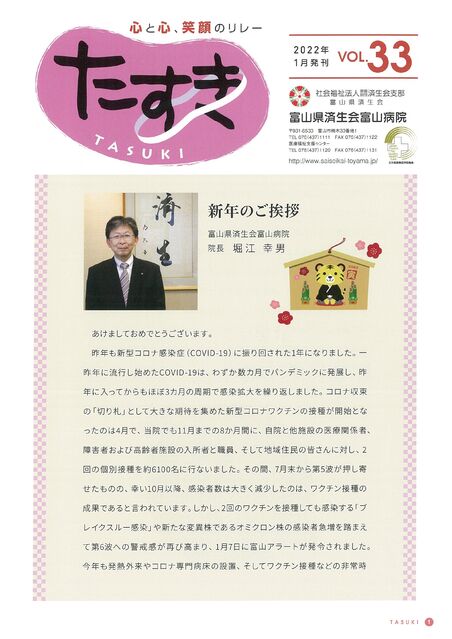 心と心、笑顔のリレー
たすき
TASUKI
2022年
1月発刊
VOL.33
社会福祉法人 恩賜財団 済生会支部
富山県済生会
富山県済生会富山病院
〒931-8533 富山市楠木33番地1
TEL 076(437)1111 FAX 076(437)1122
医療福祉支援センター
TEL 076(437)1120 FAX 076(437)1131
http://www.saiseikai-toyama.jp/
済
生
新年のご挨拶
富山県済生会富山病院
院長 堀江 幸男
寅
あけましておめでとうございます。
昨年も新型コロナ感染症(COVID-19)に振り回された1年になりました。一
昨年に流行し始めたCOVID-19は、わずか数カ月でパンデミックに発展し、昨
年に入ってからもほぼ3カ月の周期で感染拡大を繰り返しました。コロナ収束
の「切り札」として大きな期待を集めた新型コロナワクチンの接種が開始とな
ったのは4月で、当院でも11月までの8か月間に、自院と他施設の医療関係者、
障害者および高齢者施設の入所者と職員、そして地域住民の皆さんに対し、2
回の個別接種を約6100名に行ないました。その間、7月末から第5波が押し寄
せたものの、幸い10月以降、感染者数は大きく減少したのは、ワクチン接種の
成果であると言われています。しかし、2回のワクチンを接種しても感染する「ブ
レイクスルー感染」や新たな変異株であるオミクロン株の感染者急増を踏まえ
て第6波への警戒感が再び高まり、1月7日に富山アラートが発令されました。
今年も発熱外来やコロナ専門病床の設置、そしてワクチン接種などの非常時
TASUKI 1